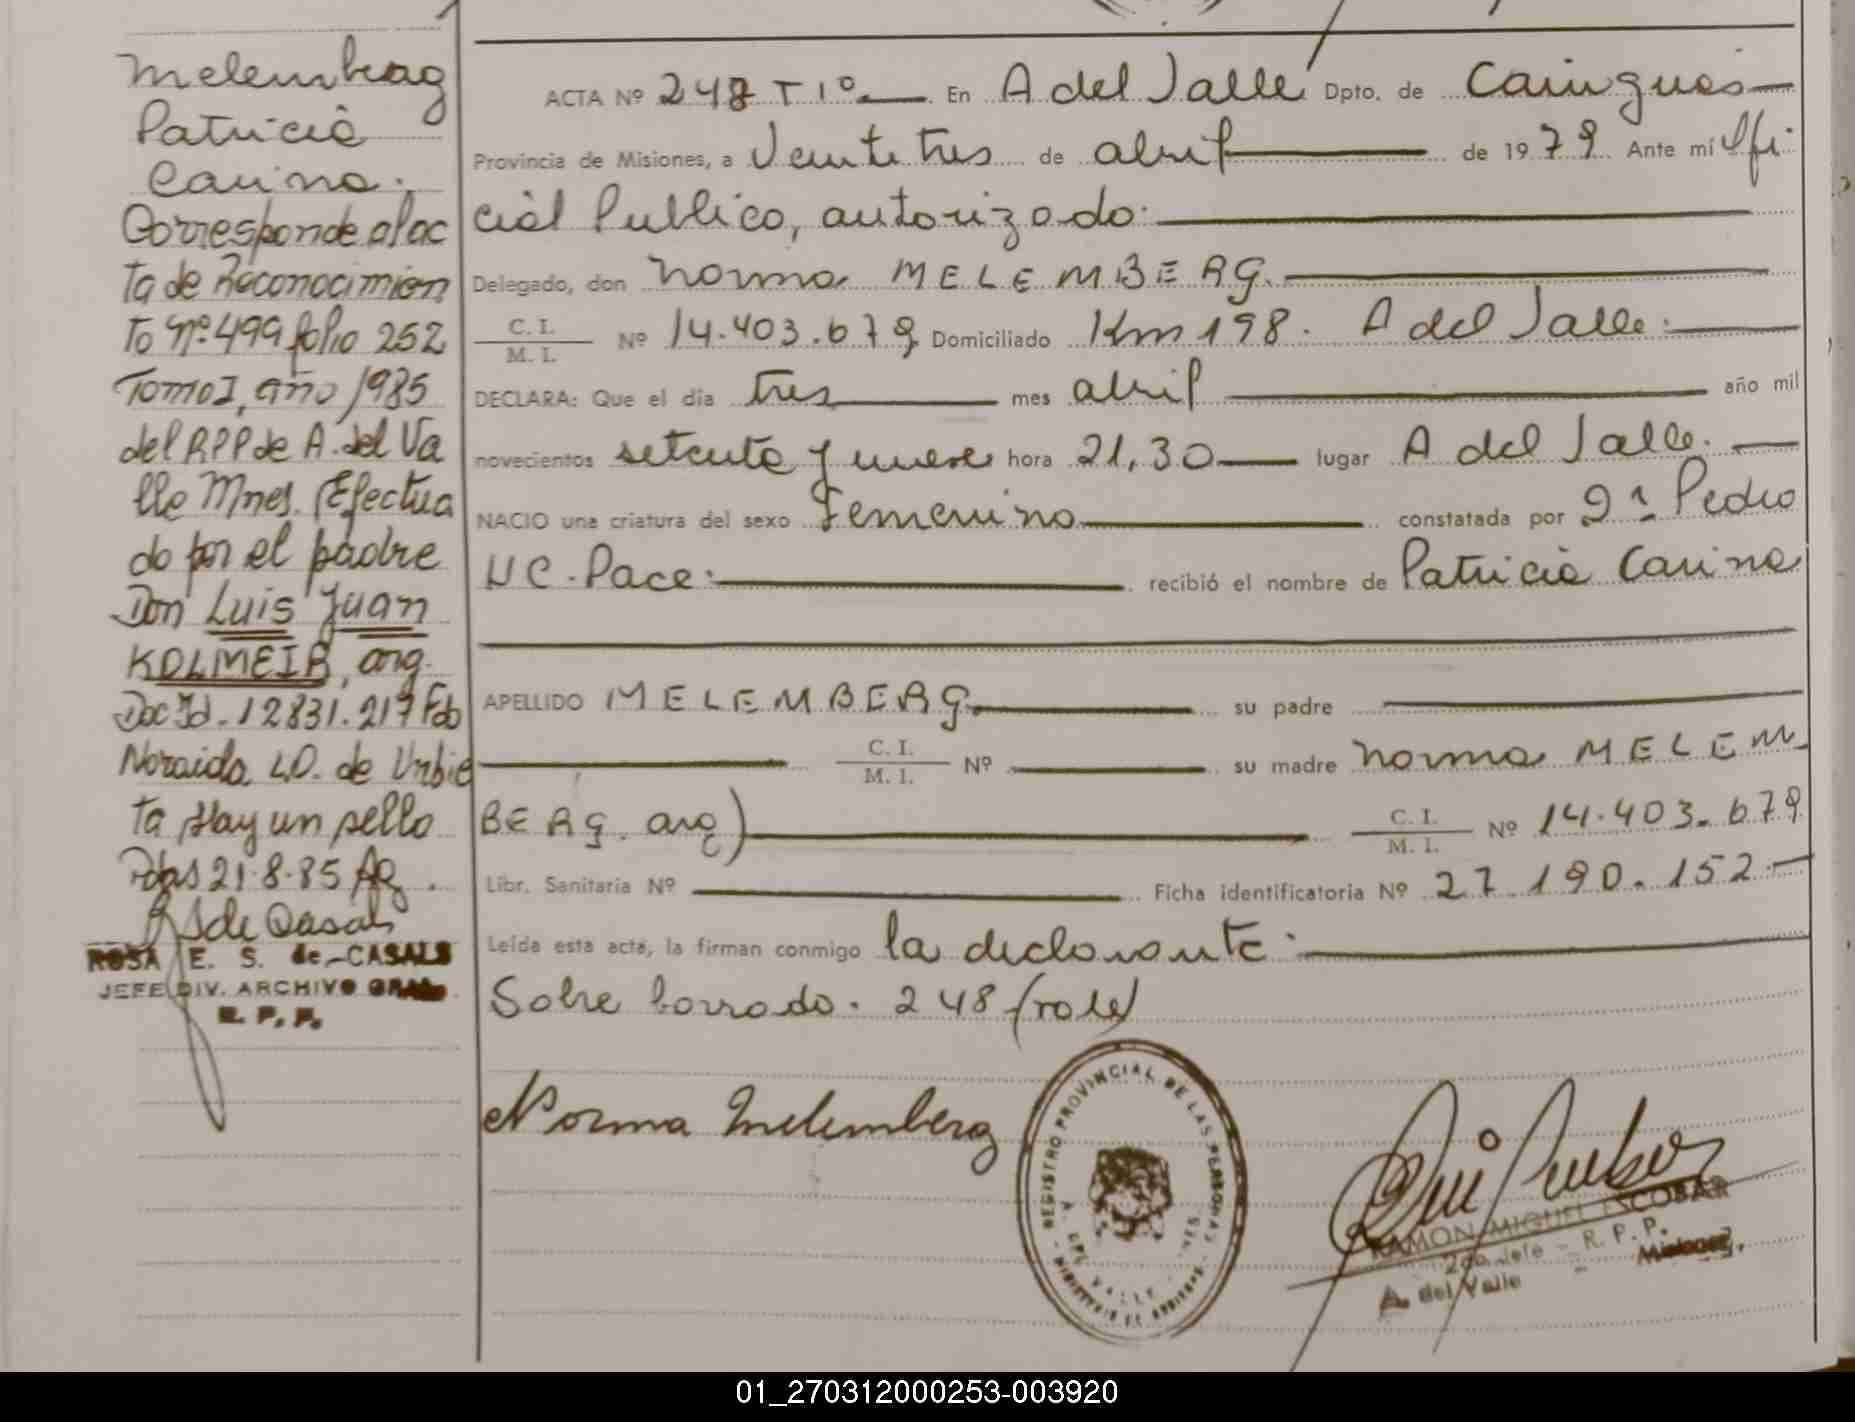 Melemberg
Patricia
Carina.
Corresponde al ac
ta de Reconocimien
to Nº 499 folio 252
Tomo I, año 1985
del RPP de A. del Va
lle Mnes. Efectua
do por el padre
Don Luis Juan
KOLMEIB, arg.
Doc Id. 12831.217 Fdo
Noraida L.O. de Urbie
ta Hay un sello
Pdas 21.8.85
de Casals
ROSA E. S. de CASALS
JEFE DIV. ARCHIVO GRAL
R. P. P.
ACTA Nº 248 T 1º En A del Valle Dpto. de Cainguas
Provincia de Misiones, a Veinte tres de abril de 1979 Ante mi Ofi
cial Publico, autorizado.
Delegado, don Norma MELEMBERG.
C. I.
M. I. Nº 14.403.679 Domiciliado Km 198. A del Valle.
DECLARA: Que el día tres mes abril año mil
novecientos setenta y nueve hora 21,30 lugar A del Valle.
NACIO una criatura del sexo Femenino constatada por Dr Pedro
UC. Pace. recibió el nombre de Patricia Carina
APELLIDO MELEMBERG. su padre
C. I.
M. I. Nº su madre Norma MELEM
BERG. arg) C. I.
M. I. Nº 14.403.679
Libr. Sanitaria Nº Ficha identificatoria Nº 27.190.152.
Leída esta acta, la firman conmigo la declarante.
Sobre borrado. 248 (vale)
Norma Melemberg
REGISTRO PROVINCIAL DE LAS PERSONAS
A. DEL VALLE
RAMON MIGUEL ESCOBAR
2do Jefe - R. P. P.
A. del Valle - Misiones.
01_270312000253-003920